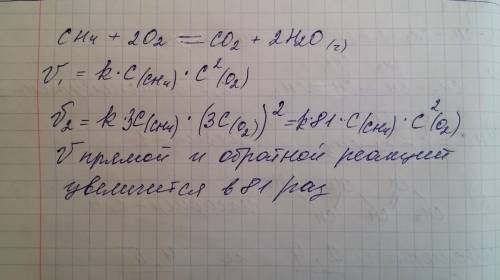 CH4 + 2O2 = CO2 + 2H2O(г)
V₁ = k·C(CH4)·C²(O2)
V₂ = k·3C(CH4)·(3C(O2))² = k·81·C(CH4)·C²(O2)
V прямой и обратной реакций
увеличится в 81 раз